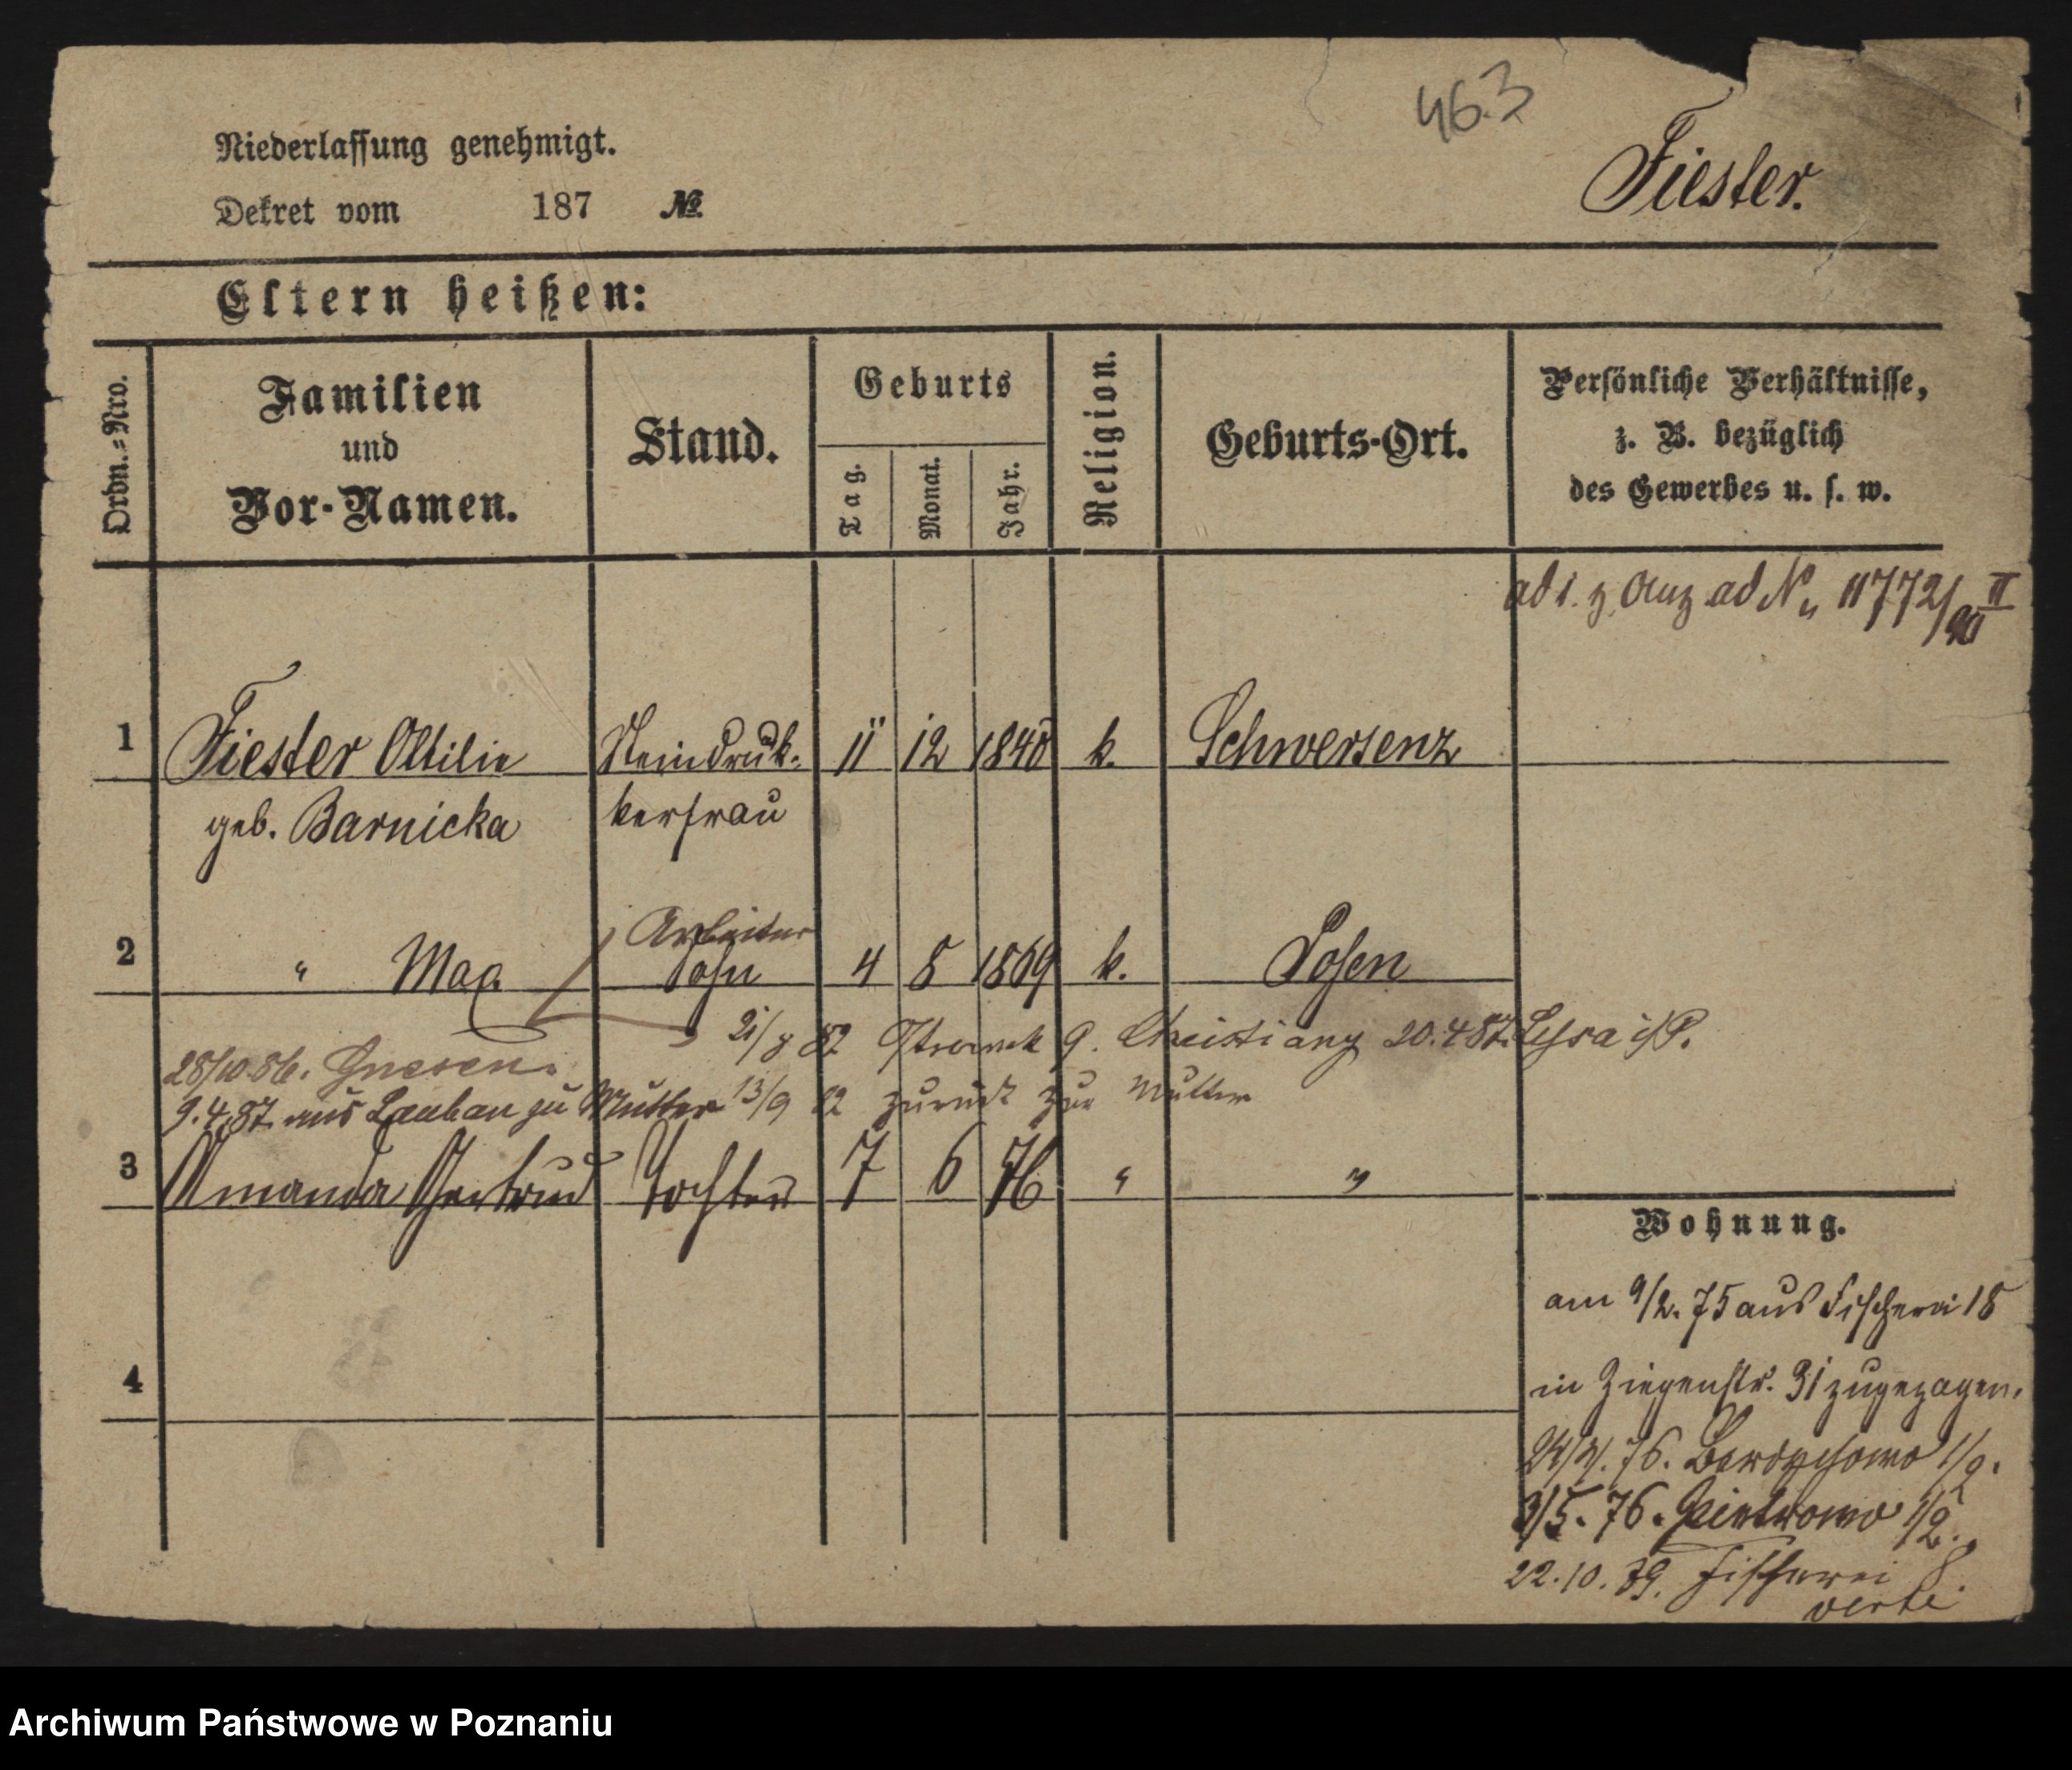 463
Niederlassung genehmigt.
Dekret vom 187 No.
Fiester.
Eltern heißen:
Ordn.-Nro.
Familien
und
Vor-Namen.
Stand.
Geburts
Tag.
Monat.
Jahr.
Religion.
Geburts-Ort.
Persönliche Verhältnisse,
z. B. bezüglich
des Gewerbes u. s. w.
ad 1. z. Anz ad No 11772/90 II
1 Fiester Ottilie Steindruk- 11 12 1840 k. Schwersenz
geb. Barnicka kerfrau
Arbeiter
2 " Max Sohn 4 8 1869 k. Posen
28/10.86. Gnesen. 21/8 82 9. 20.4 87. Lissa i/P.
9.4.87. aus Lauban zu Mutter 13/9 82 zurück zur Mutter
3 Amanda Gertrud Tochter 7 6 76 " "
Wohnung.
am 9/2. 75 aus Fischerei 18
in Ziegenstr. 31 zugezogen.
4
76. 1/2.
3/5. 76. 1/2.
22.10.79. Fischerei 8
verte
Archiwum Państwowe w Poznaniu